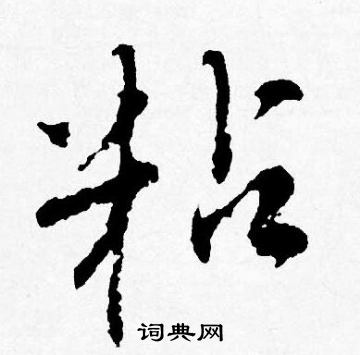 粘
词典网